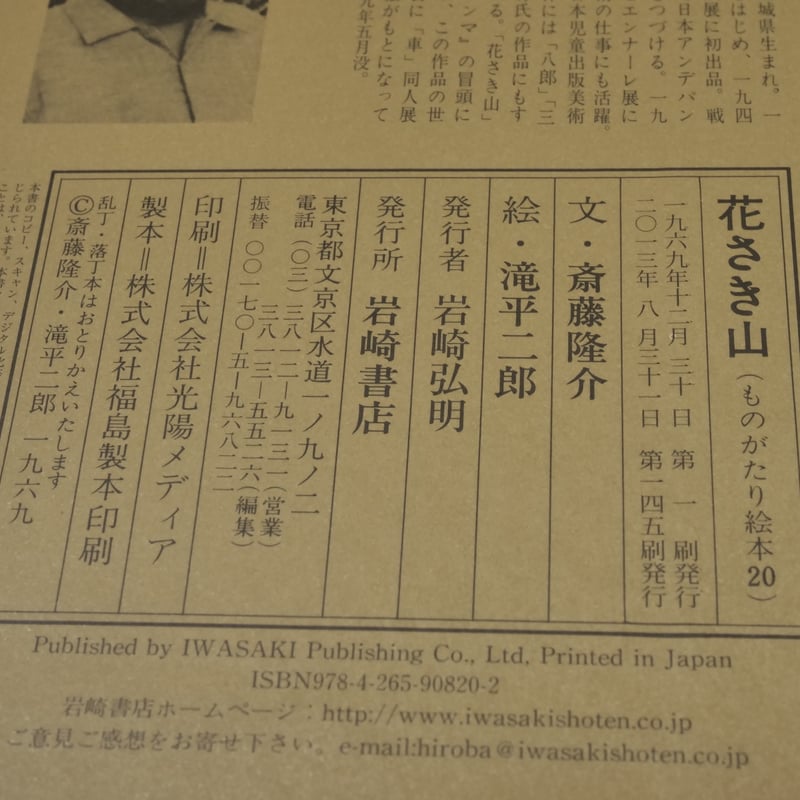 城県生まれ。一
はじめ、一九四
展に初出品。戦
日本アンデパン
つづける。一九
エンナーレ展に
の仕事にも活躍。
本児童出版美術
には「八郎」「三
氏の作品にもす
る。「花さき山」
ンマ』の冒頭に
、この作品の世
に「車」同人展
がもとになって
九年五月没。
花さき山（ものがたり絵本20）
一九六九年十二月三十日 第一刷発行
二〇一三年八月三十一日 第一四五刷発行
文・斎藤隆介
絵・滝平二郎
発行者 岩崎弘明
発行所 岩崎書店
東京都文京区水道一ノ九ノ二
電話（〇三）三八一二―九一三一（営業）
三八一三―五五二六（編集）
振替 〇〇一七〇―五―九六八二二
印刷＝株式会社光陽メディア
製本＝株式会社福島製本印刷
乱丁・落丁本はおとりかえいたします
©斎藤隆介・滝平二郎 一九六九
本書のコピー、スキャン、デジタル化等
じられています。本書
Published by IWASAKI Publishing Co., Ltd, Printed in Japan
ISBN978-4-265-90820-2
岩崎書店ホームページ：http://www.iwasakishoten.co.jp
ご意見ご感想をお寄せ下さい。e-mail:hiroba@iwasakishoten.co.jp